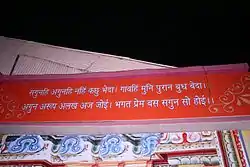 सगुनहि अगुनहि नहिं कछु भेदा। गावहिं मुनि पुरान बुध बेदा।
अगुन अरूप अलख अज जोई। भगत प्रेम बस सगुन सो होई।।